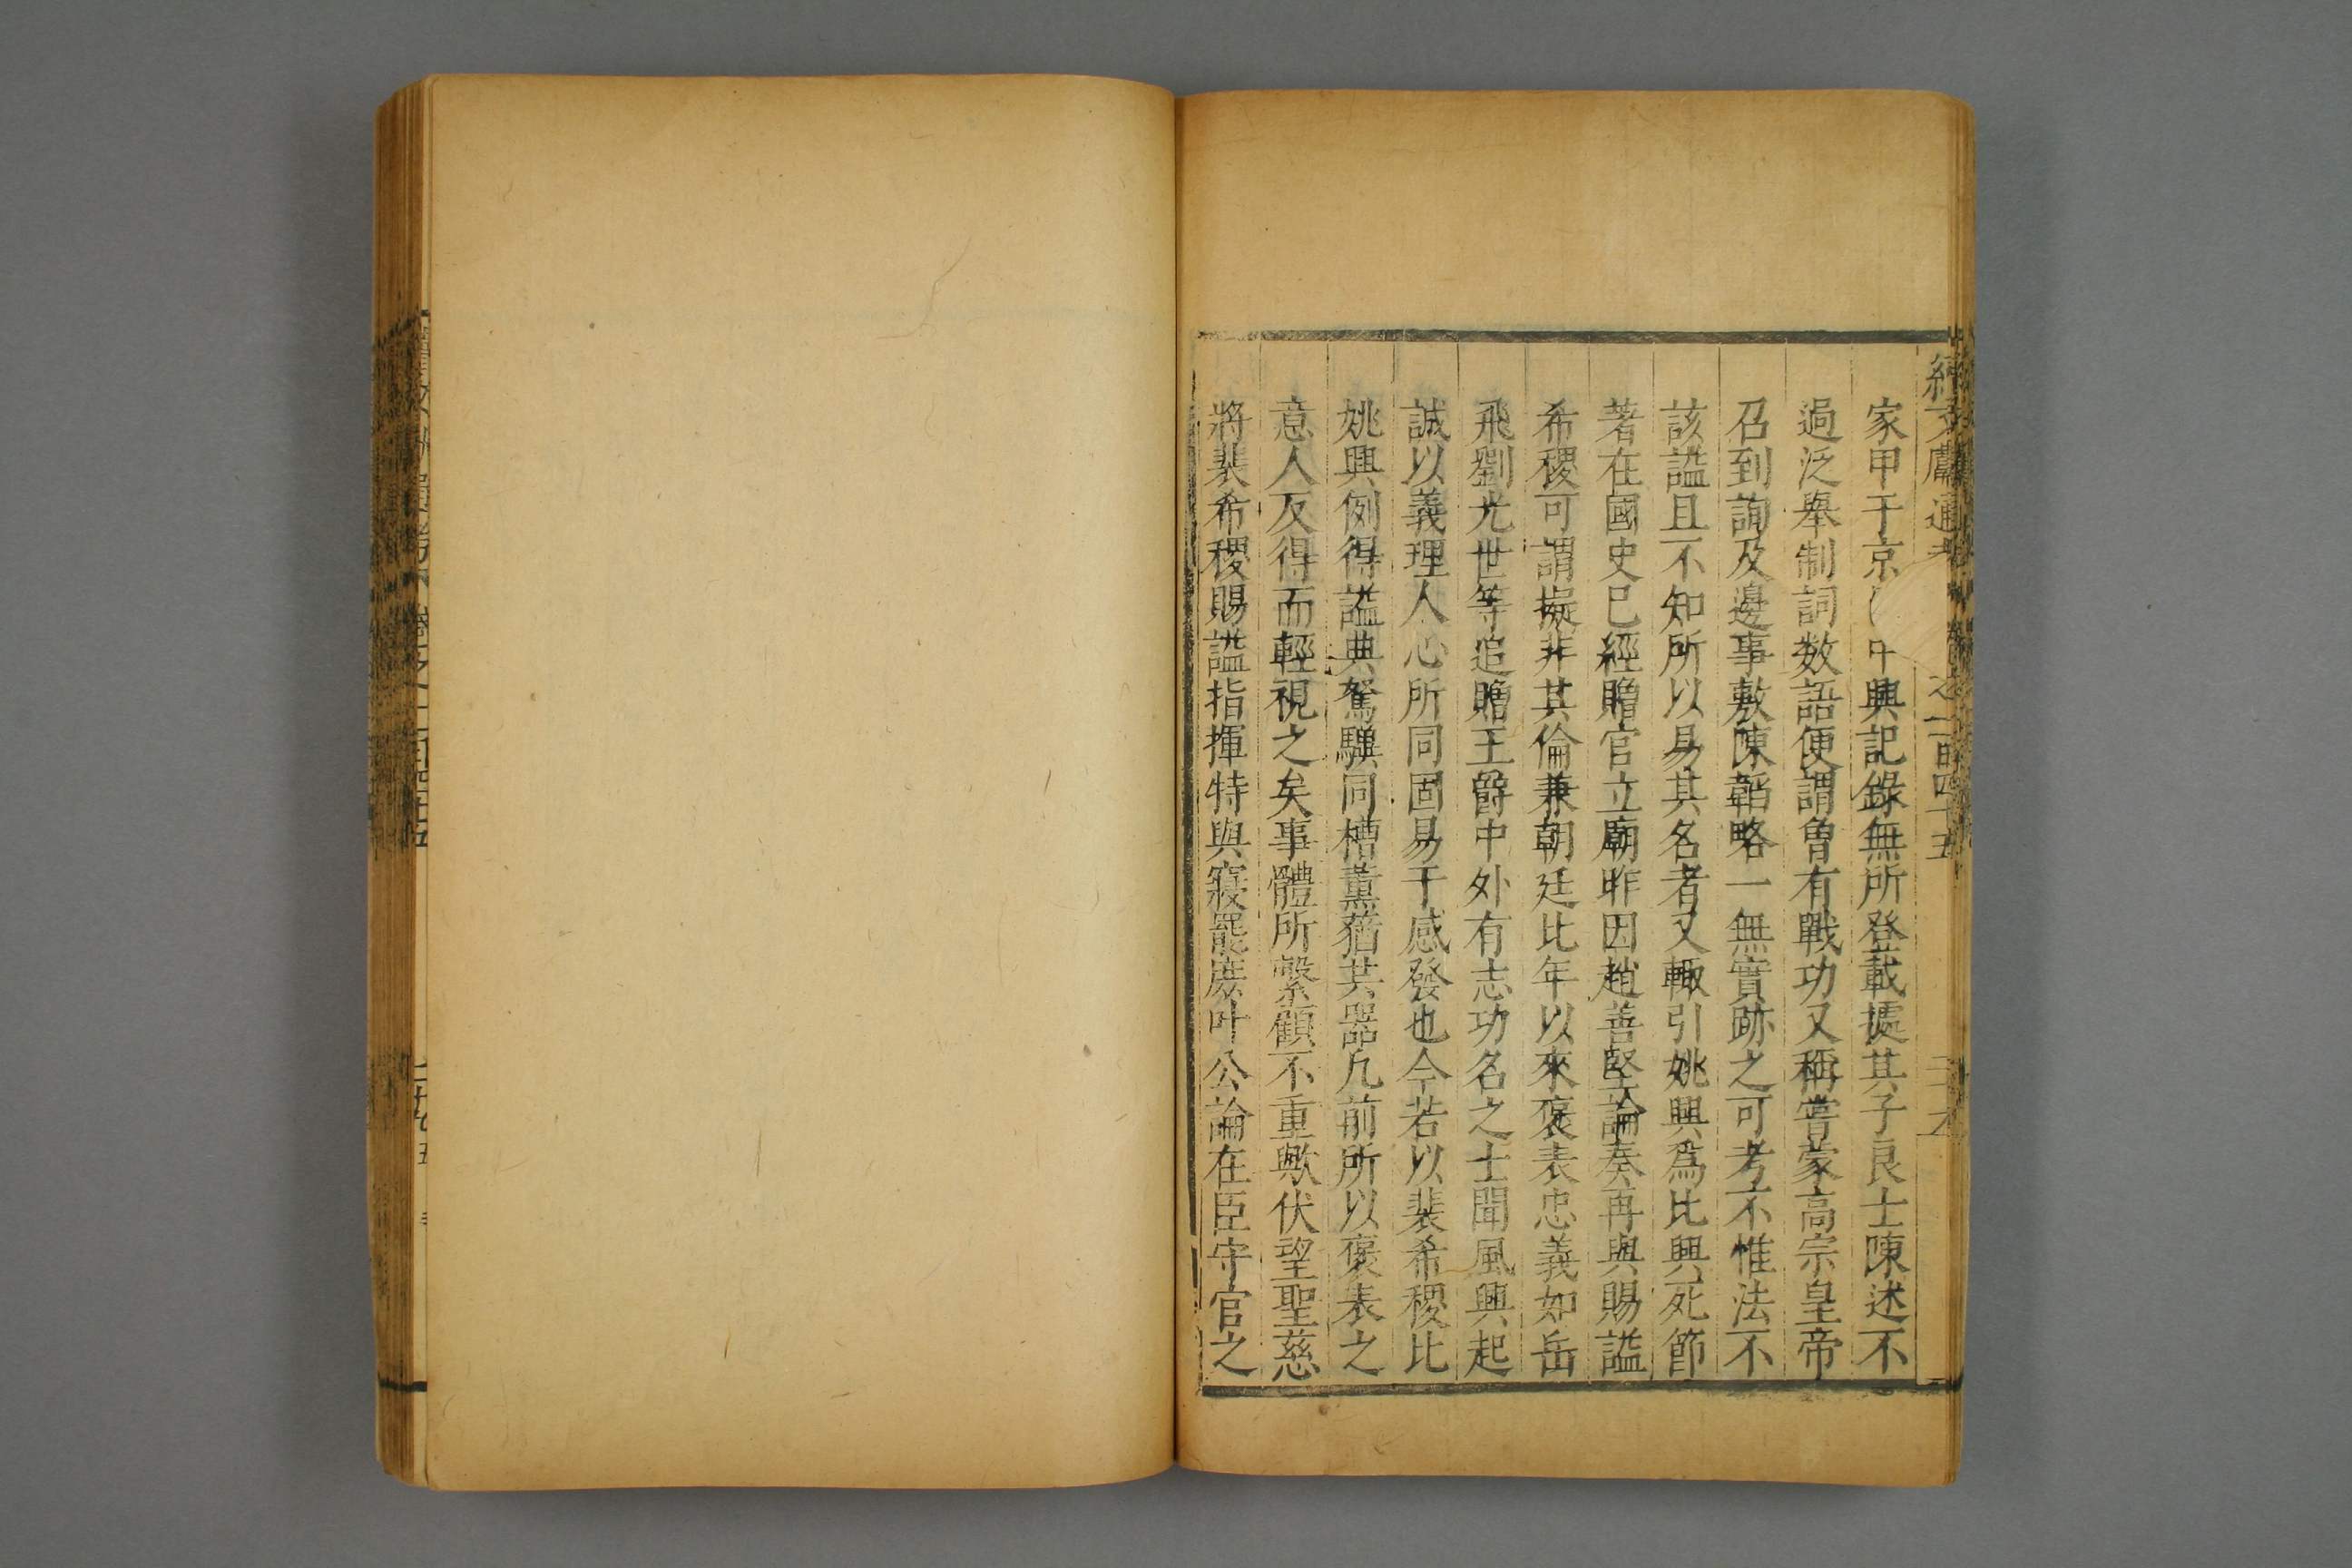 續文獻通考 卷之一百四十五
家甲于京 中興記錄無所登載據其子良士陳述不
過泛舉制詞数語便謂曾有戰功又稱嘗蒙高宗皇帝
召到詢及邊事敷陳韜略一無實跡之可考不惟法不
該謚且不知所以易其名者又輙引姚興爲比興死節
著在國史已經贈官立廟昨因趙善堅論奏再與賜謚
希稷可謂擬非其倫兼朝廷比年以來褒表忠義如岳
飛劉光世等追贈王爵中外有志功名之士聞風興起
誠以義理人心所同固易于感發也今若以裴希稷比
姚興例得謚典駑驥同槽薰蕕共器凢前所以褒表之
意人反得而輕視之矣事體所繫顧不重歟伏望聖慈
將裴希稷賜謚指揮特與寢罷庶叶公論在臣守官之